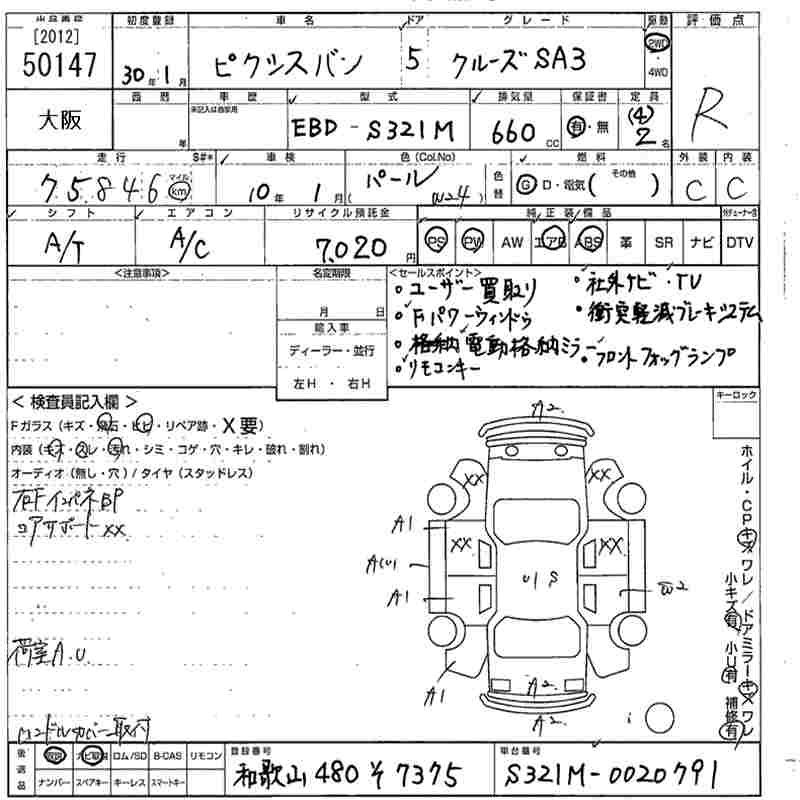 [2012]
50147
大阪
初度登録
30年1月
車名
ピクシスバン
ドア
5
グレード
クルーズSA3
駆動
2WD
4WD
評価点
R
西暦
年
車歴
未記入は自家用
型式
EBD-S321M
排気量
660 CC
保証書
有・無
定員
(4)
2名
走行
S#*
75846
マイル
km
車検
10年1月
色(Col.No)
パール
(W24)
色替
燃料
G D・電気( その他 )
外装
C
内装
C
シフト
A/T
エアコン
A/C
リサイクル預託金
7,020円
純正装備品
PS PW AW エアB ABS 革 SR ナビ DTV
<注意事項>
名変期限
月 日
輸入車
ディーラー・並行
左H・右H
<セールスポイント>
・ユーザー買取り
・Fパワーウィンドウ
・電動格納ミラー
・リモコンキー
・社外ナビ・TV
・衝突軽減ブレーキシステム
・フロントフォッグランプ
キーロック
<検査員記入欄>
Fガラス(キズ・飛石・ヒビ・リペア跡・X要)
内装(キズ・スレ・汚れ・シミ・コゲ・穴・キレ・破れ・割れ)
オーディオ(無し・穴)/タイヤ(スタッドレス)
右FインパネBP
コアサポートXX
荷室A.U
ハンドルカバー取付
A2
XX
XX
A1
XX
XX
A(U)
U1S
A1
W2
A1
A2
A2
ホイル・CPキズワレ/ドアミラーキズワレ
小キズ有 小U有 補修有
後送品
取説 ナビ取説 ロム/SD B-CAS リモコン
ナンバー スペアキー キーレス スマートキー
登録番号
和歌山480そ7375
車台番号
S321M-0020791